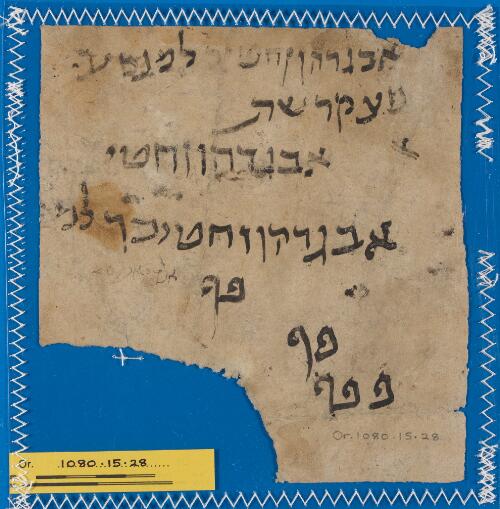 אבגדהוזחטי למנסע
פצקרשת
אבגדהוזחטי
אבגדהוזחטיכך למ
פף
פף
פ פף
Or.1080.15.28
Or. 1080.15.28